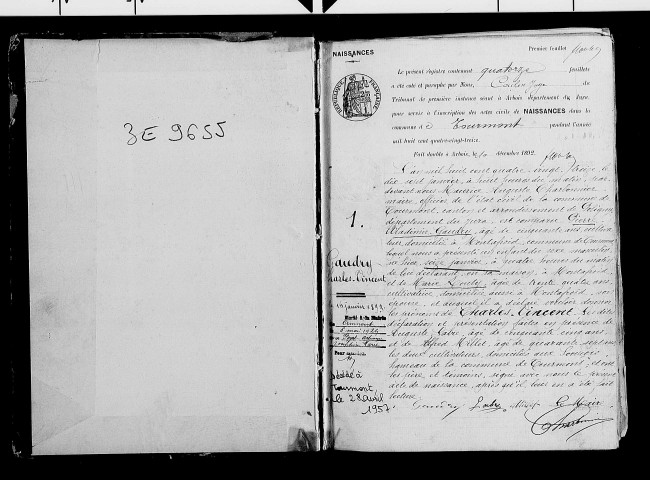 3E 9655
NAISSANCES
Premier feuillet
Le présent registre contenant quatorze feuillets
a été coté et paraphé par Nous,
Tribunal de première instance séant à Arbois département du Jura,
pour servir à l'inscription des actes civils de NAISSANCES dans la
commune d e Tourmont pendant l'année
mil huit cent quatre-vingt-treize.
Fait double à Arbois, le décembre 1892.
1.
Gaudry
Charles-Vincent
L'an mil huit cent quatre-vingt-treize le
dix sept janvier, à huit heures du matin, par
devant nous Maurice Auguste Charbonnier
maire, officier de l'état civil de la commune de
Tourmont, canton et arrondissement de Poligny
département du Jura, est comparu
Gaudry, âgé de cinquante ans cultiva
teur domicilié à commune de Tourmont
lequel nous a présenté un enfant du sexe masculin
né hier, seize janvier, à quatre heures du matin
de lui déclarant, en sa maison, à
et de Marie âgée de trente quatre ans
cultivatrice, domiciliée aussi à
épouse, et auquel il a déclaré vouloir donner
les prénoms de Charles-Vincent. Les dites
déclaration et présentation faites en présence de
Auguste Labre, âgé de cinquante cinq ans
et de Alfred Millet, âgé de quarante sept ans
les deux cultivateurs, domiciliés aux
hameau de la commune de Tourmont; et ont
les père et témoins, signé avec nous le présent
acte de naissance, après qu'il leur en a été fait
lecture.
Gaudry Labre Millet Le Maire
Charbonnier
Marié à la Mairie
Tourmont
Décédé à
Tourmont
le 28 avril
1957